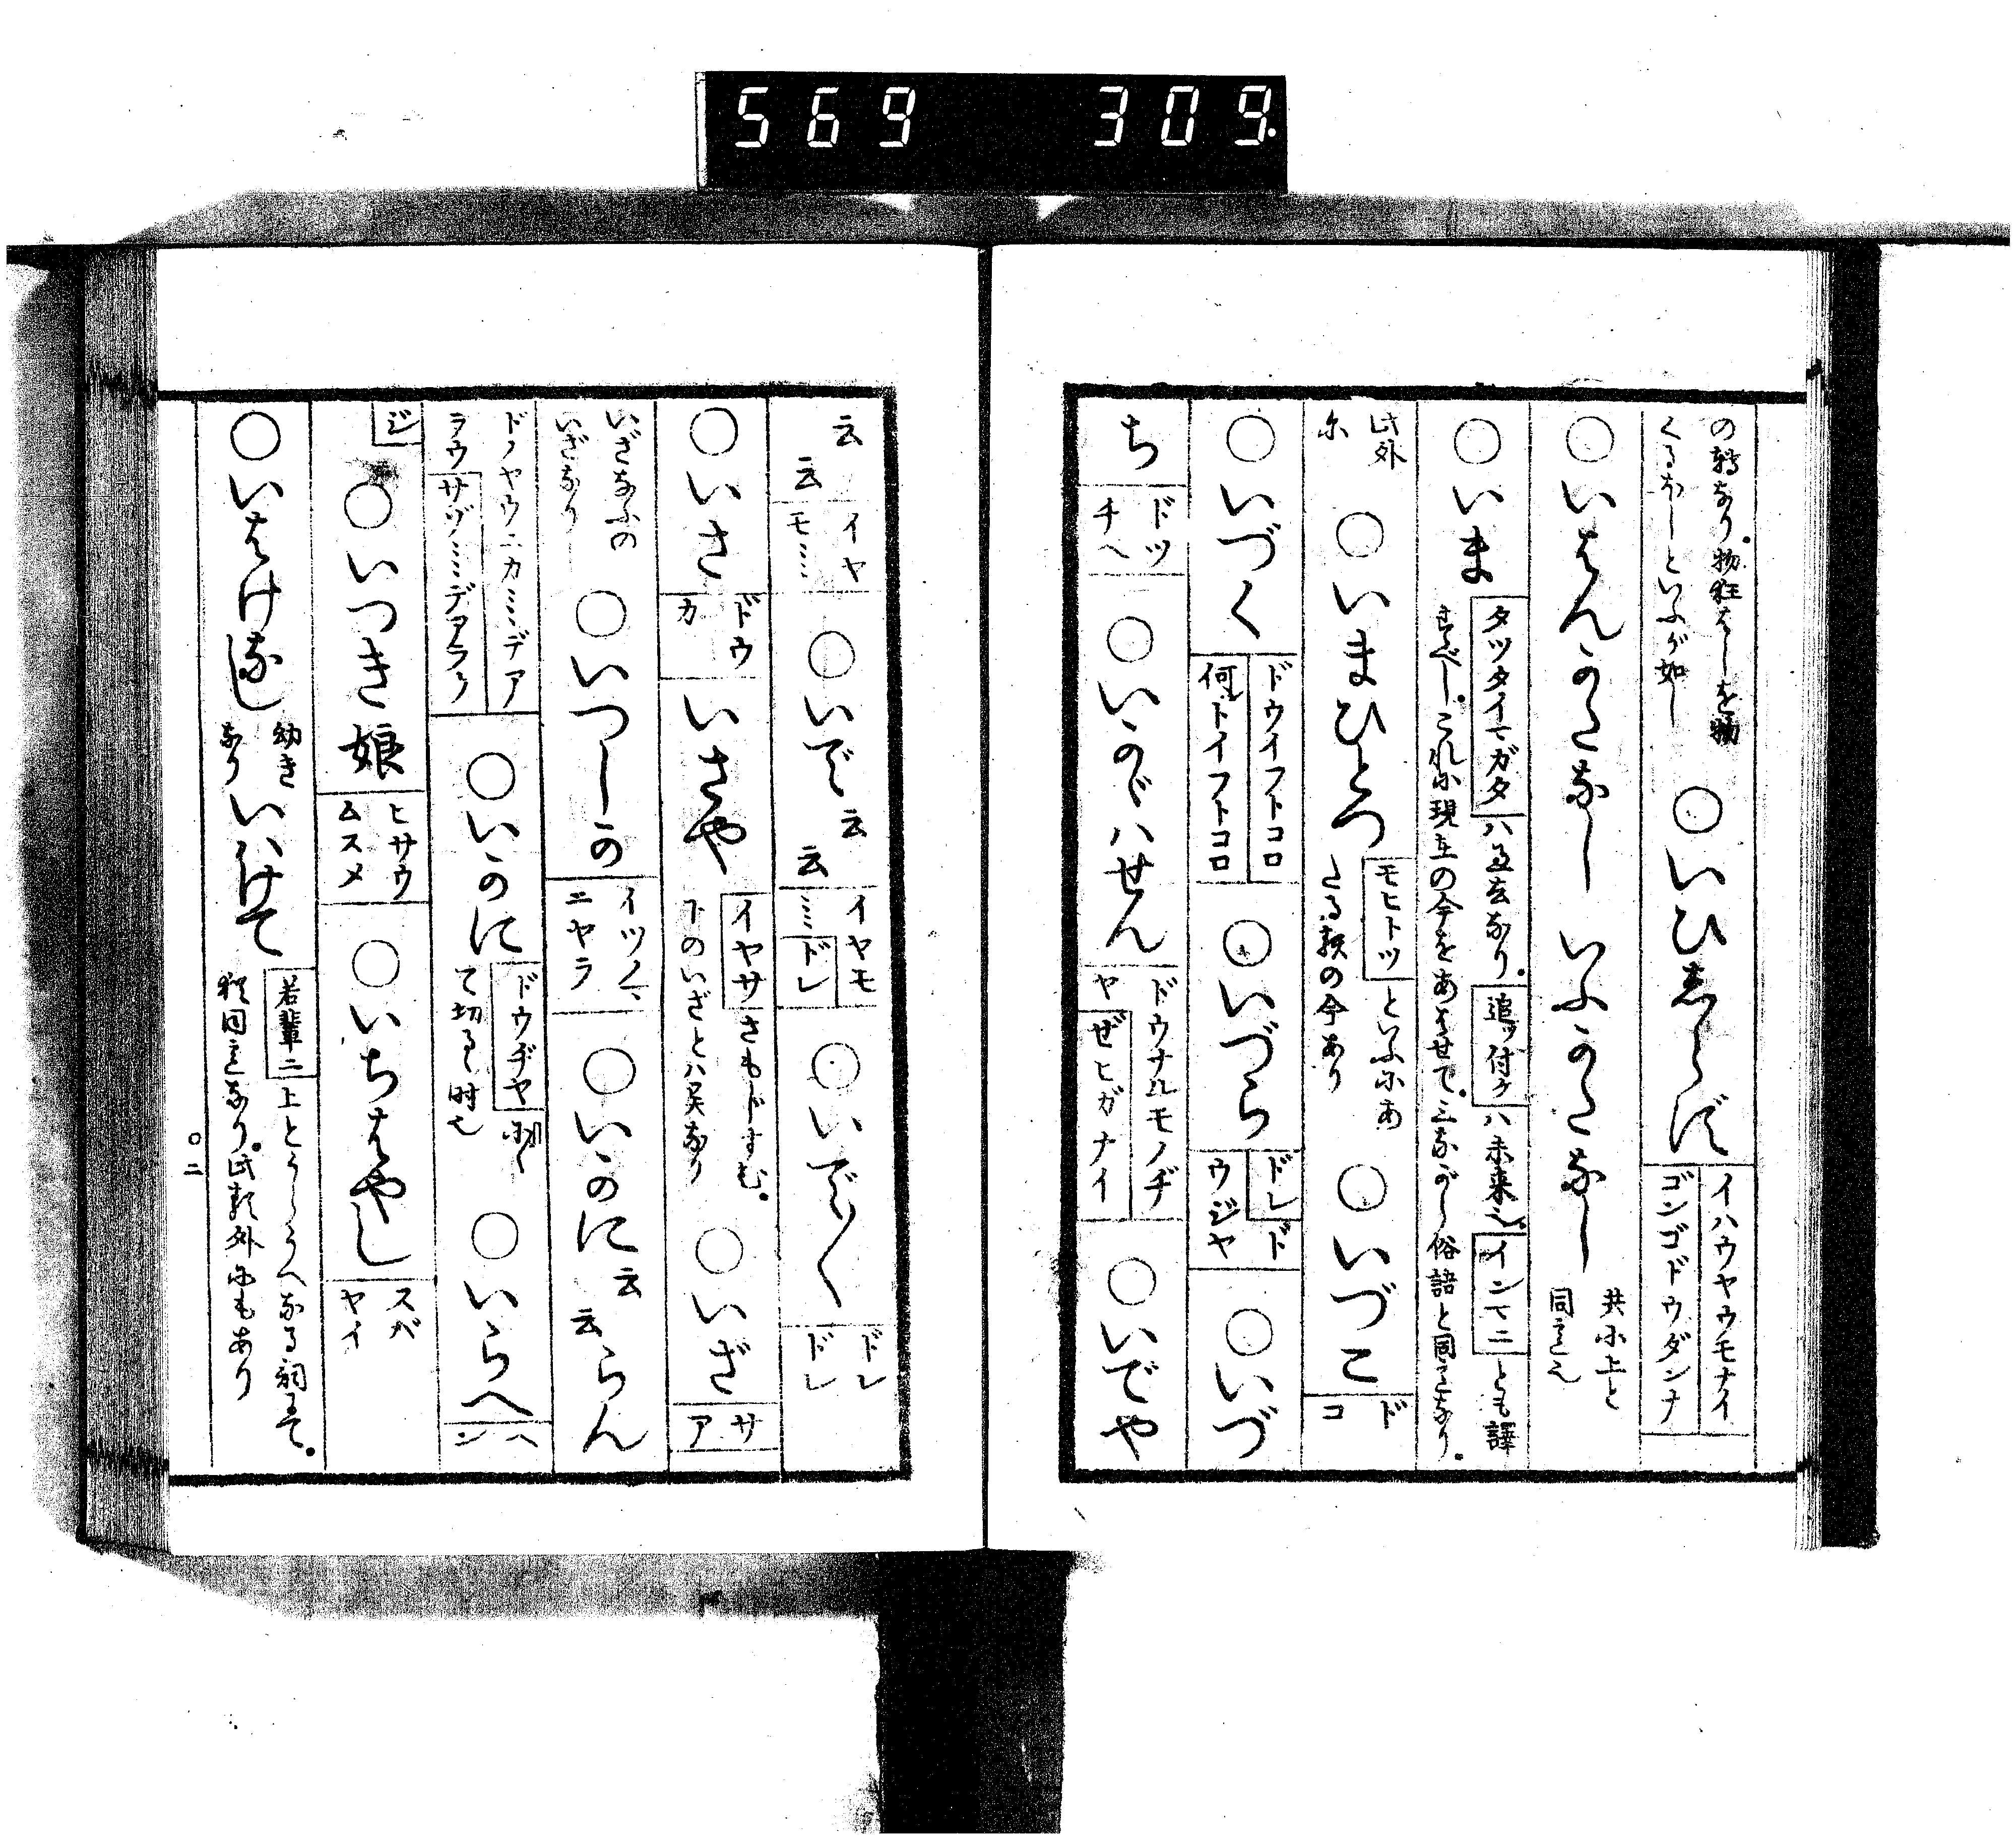 569 309.
の轉なり。物狂はしを物
くるほしといふが如し
○いひしらず
イハウヤウモナイ
ゴンゴドウダンナ
○いはんかたなし いふかたなし
共に上と
同意也
○いま
タツタイマガタ
ハ過去なり。
追ッ付ケ
ハ未来也
インマニ
とも譯
すべし。これに現在の今をあはせて。三ながら俗語と同意なり。
此外
に
○いまひとつ
モヒトツ
といふにあ
たる類の今あり
○いづこ
ド
コ
○いづく
ドウイフトコロ
何トイフトコロ
○いづら
ドレ
ド
ウジヤ
○いづ
ち
ドツ
チヘ
○いかゞハせん
ドウナルモノヂ
ヤ
ゼヒガナイ
○いでや
云
云
イヤ
モミミ
○いで
云
云
イヤモ
ミミ
ドレ
○いで〱
ドレ
ドレ
○いさ
ドウ
カ
いさや
イヤサ
さもじすむ。
下のいざとハ異なり
○いざ
サ
ア
いざなふの
いざなり
○いつしか
イツノマ
ニヤラ
○いかに
云
云
らん
ドノヤウニカミミデア
ラウ
サゾミミデアラウ
○いかに
ドウヂヤ
て切るゝ時也
○いらへ
ヘン
ジ
○いつき娘
ヒサウ
ムスメ
○いちはやし
スバ
ヤイ
○いはけなし
幼き
なり
いはけて
若輩ニ
上とうらうへなる詞にて。
程同意なり。此類外にもあり
○二